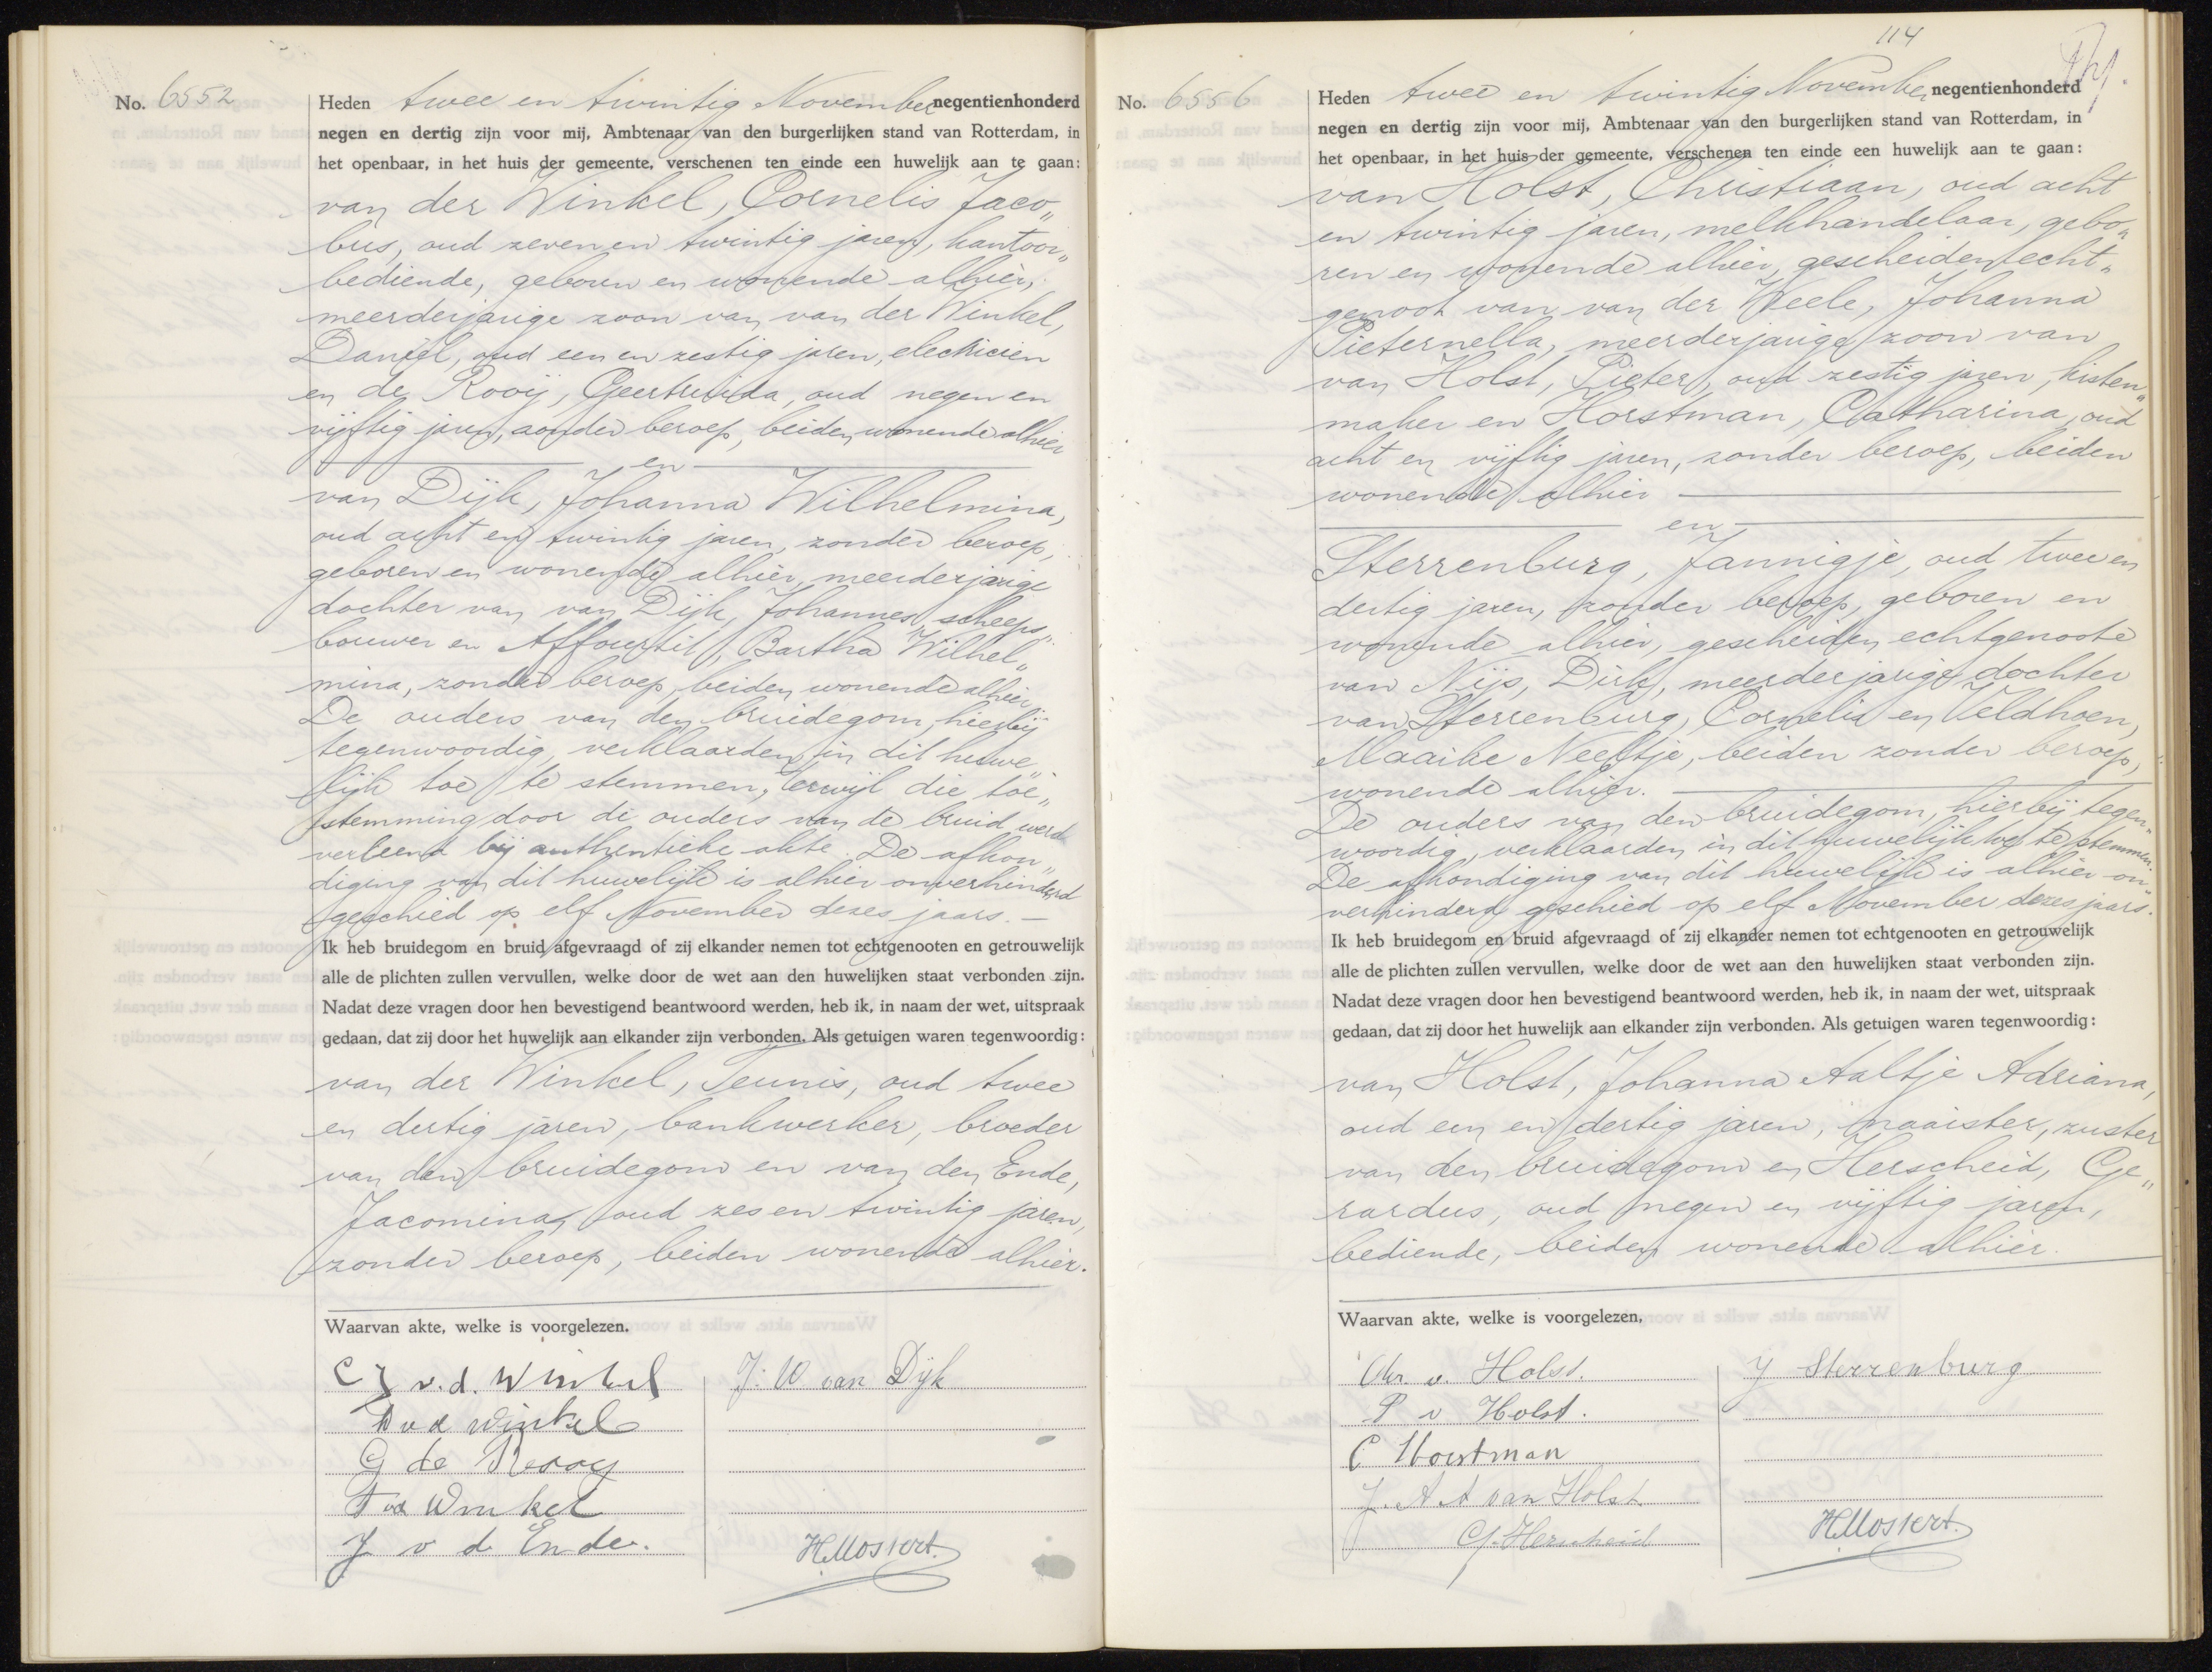 No. 6552
Heden twee en twintig November negentienhonderd
negen en dertig zijn voor mij, Ambtenaar van den burgerlijken stand van Rotterdam, in
het openbaar, in het huis der gemeente, verschenen ten einde een huwelijk aan te gaan:
van der Winkel, Cornelis Jaco„
bus, oud zeven en twintig jaren, kantoor„
bediende, geboren en wonende alhier,
meerderjarige zoon van van der Winkel,
Daniël, oud een en zestig jaren, electricien
en de Rooij, Geertruida, oud negen en
vijftig jaren, zonder beroep, beiden wonende alhier
en
van Dijk, Johanna Wilhelmina,
oud acht en twintig jaren, zonder beroep,
geboren en wonende alhier, meerderjarige
dochter van van Dijk, Johannes, scheeps„
bouwer en Affourtit, Bartha Wilhel„
mina, zonder beroep, beiden wonende alhier.
De ouders van den bruidegom, hierbij
tegenwoordig, verklaarden in dit huwe„
lijk toe te stemmen, terwijl die toe„
stemming door de ouders van de bruid werd
verleend bij authentieke akte. De afkon„
diging van dit huwelijk is alhier onverhinderd
geschied op elf November dezes jaars.
Ik heb bruidegom en bruid afgevraagd of zij elkander nemen tot echtgenooten en getrouwelijk
alle de plichten zullen vervullen, welke door de wet aan den huwelijken staat verbonden zijn.
Nadat deze vragen door hen bevestigend beantwoord werden, heb ik, in naam der wet, uitspraak
gedaan, dat zij door het huwelijk aan elkander zijn verbonden. Als getuigen waren tegenwoordig:
van der Winkel, Teunis, oud twee
en dertig jaren, bankwerker, broeder
van den bruidegom en van den Ende,
Jacomina, oud zes en twintig jaren,
zonder beroep, beiden wonende alhier.
Waarvan akte, welke is voorgelezen.
C J v. d. Winkel
D v d Winkel
G de Rooy
T vd Winkel
J v d Ende.
J. W van Dijk
H. Mostert.
114
No. 6556
Heden twee en twintig November negentienhonderd
negen en dertig zijn voor mij, Ambtenaar van den burgerlijken stand van Rotterdam, in
het openbaar, in het huis der gemeente, verschenen ten einde een huwelijk aan te gaan:
van Holst, Christiaan, oud acht
en twintig jaren, melkhandelaar, gebo„
ren en wonende alhier, gescheiden echt„
genoot van van der Weele, Johanna
Pieternella, meerderjarige zoon van
van Holst, Pieter, oud zestig jaren, kisten„
maker en Horstman, Catharina, oud
acht en vijftig jaren, zonder beroep, beiden
wonende alhier
en
Sterrenburg, Jannigje, oud twee en
dertig jaren, zonder beroep, geboren en
wonende alhier, gescheiden echtgenoote
van Nijs, Dirk, meerderjarige dochter
van Sterrenburg, Cornelis en Veldhoen,
Maaike Neeltje, beiden zonder beroep,
wonende alhier.
De ouders van den bruidegom, hierbij tegen„
woordig, verklaarden in dit huwelijk toe te stemmen.
De afkondiging van dit huwelijk is alhier on„
verhinderd geschied op elf November dezes jaars.
Ik heb bruidegom en bruid afgevraagd of zij elkander nemen tot echtgenooten en getrouwelijk
alle de plichten zullen vervullen, welke door de wet aan den huwelijken staat verbonden zijn.
Nadat deze vragen door hen bevestigend beantwoord werden, heb ik, in naam der wet, uitspraak
gedaan, dat zij door het huwelijk aan elkander zijn verbonden. Als getuigen waren tegenwoordig:
van Holst, Johanna Aaltje Adriana,
oud een en dertig jaren, naaister, zuster
van den bruidegom en Herscheid, Ge„
rardus, oud negen en vijftig jaren,
bediende, beiden wonende alhier.
Waarvan akte, welke is voorgelezen,
Chr v. Holst.
P v Holst.
C Horstman
J. A A van Holst
G. Herscheid
J Sterrenburg
H. Mostert.